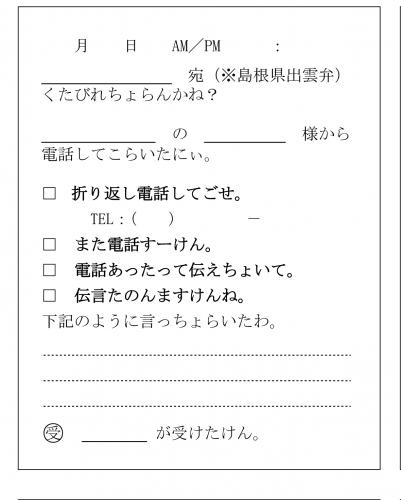 月　日　AM／PM　：
＿＿＿＿＿＿＿＿ 宛（※島根県出雲弁）
くたびれちょらんかね？
＿＿＿＿＿＿＿ の ＿＿＿＿＿ 様から
電話してこらいたにぃ。
□ 折り返し電話してごせ。
TEL：(　　)　　　　－
□ また電話すーけん。
□ 電話あったって伝えちょいて。
□ 伝言たのんますけんね。
下記のように言っちょらいたわ。
㊟受 ＿＿＿＿ が受けたけん。